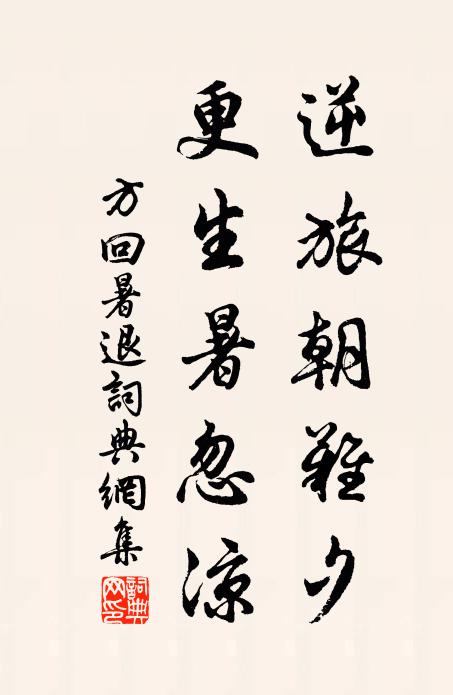 逆旅朝難夕
更生暑忽凉
方回暑退詞典網集
詞典網印